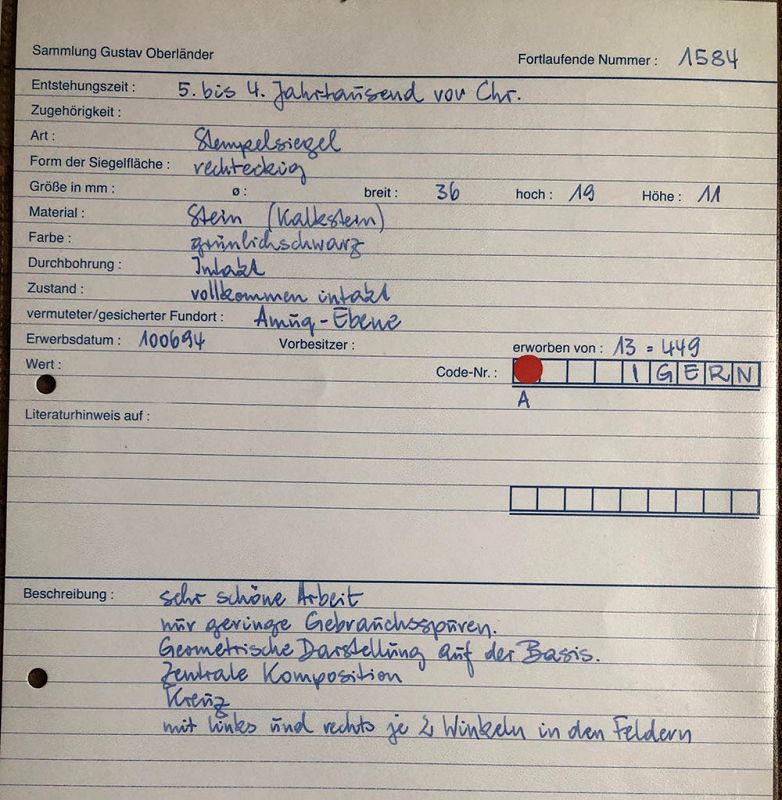 Sammlung Gustav Oberländer
Fortlaufende Nummer : 1584
Entstehungszeit : 5. bis 4. Jahrtausend vor Chr.
Zugehörigkeit :
Art : Stempelsiegel
Form der Siegelfläche : rechteckig
Größe in mm : ø : breit : 36 hoch : 19 Höhe : 11
Material : Stein (Kalkstein)
Farbe : grünlichschwarz
Durchbohrung : Intakt
Zustand : vollkommen intakt
vermuteter/gesicherter Fundort : Amuq-Ebene
Erwerbsdatum : 100694 Vorbesitzer : erworben von : 13 = 449
Wert : Code-Nr. : I G E R N
A
Literaturhinweis auf :
Beschreibung : sehr schöne Arbeit
nur geringe Gebrauchsspuren.
Geometrische Darstellung auf der Basis.
Zentrale Komposition
Kreuz
mit links und rechts je 2 Winkeln in den Feldern